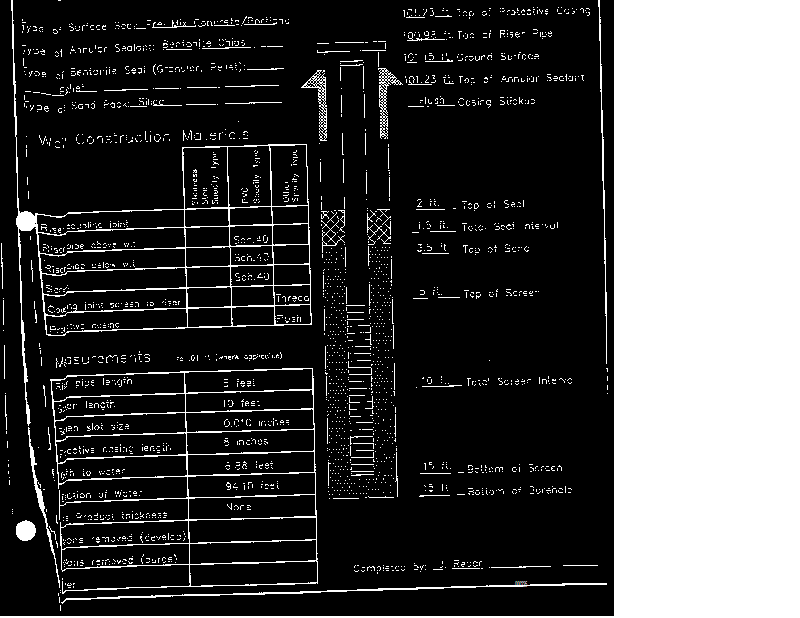 Type of Surface Seal: Pre Mix Concrete/Portland
Type of Annular Sealant: Bentonite Chips
Type of Bentonite Seal (Granular, Pellet):
Pellet
Type of Sand Pack: Silica
101.23 ft. Top of Protective Casing
100.98 ft. Top of Riser Pipe
101.15 ft. Ground Surface
101.23 ft. Top of Annular Sealant
Flush Casing Stickup
Well Construction Materials
Stainless Steel Specify Type
PVC Specify Type
Other Specify Type
Riser coupling joint
Riser pipe above w.t. Sch.40
Riser pipe below w.t. Sch.40
Screen Sch.40
Coupling joint screen to riser Thread
Protective casing Flush
2 ft. Top of Seal
1.5 ft. Total Seal Interval
3.5 ft. Top of Sand
5 ft. Top of Screen
10 ft. Total Screen Interval
15 ft. Bottom of Screen
15 ft. Bottom of Borehole
Measurements to .01 ft (where applicable)
Riser pipe length 5 feet
Screen length 10 feet
Screen slot size 0.010 inches
Protective casing length 8 inches
Depth to water 6.88 feet
Elevation of Water 94.10 feet
Product thickness None
Gallons removed (develop)
Gallons removed (purge)
Other
Completed By: